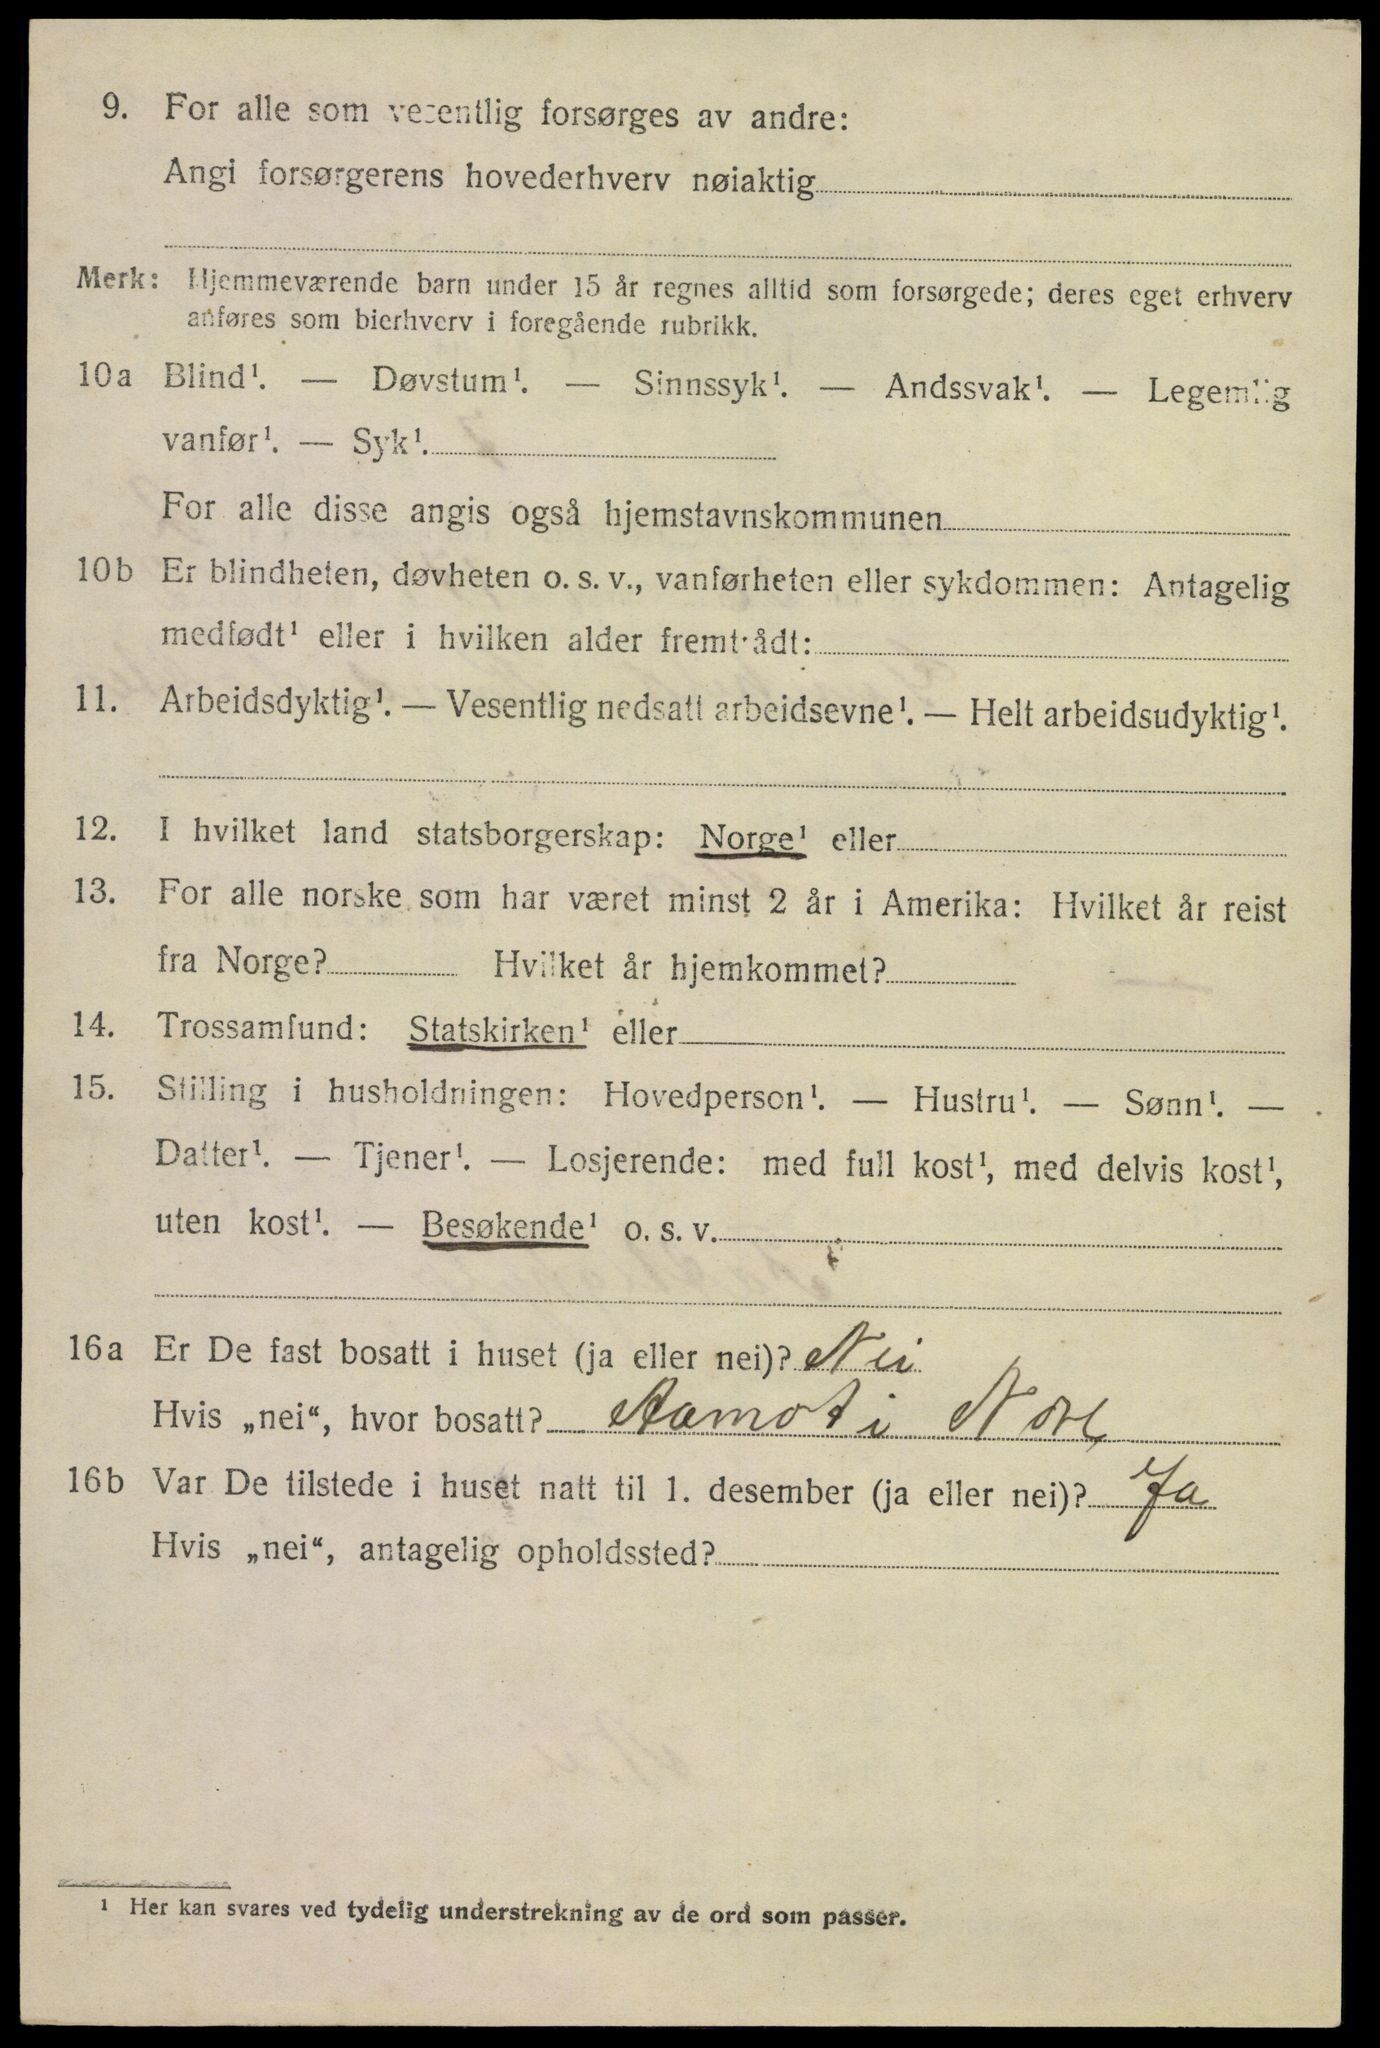 9. For alle som vesentlig forsørges av andre:
Angi forsørgerens hovederhverv nøiaktig
Merk: Hjemmeværende barn under 15 år regnes alltid som forsørgede; deres eget erhverv
anføres som bierhverv i foregående rubrikk.
10a Blind¹. — Døvstum¹. — Sinnssyk¹. — Andssvak¹. — Legemlig
vanfør¹. — Syk¹.
For alle disse angis også hjemstavnskommunen
10b Er blindheten, døvheten o. s. v., vanførheten eller sykdommen: Antagelig
medfødt¹ eller i hvilken alder fremtrådt:
11. Arbeidsdyktig¹. — Vesentlig nedsatt arbeidsevne¹. — Helt arbeidsudyktig¹.
12. I hvilket land statsborgerskap: Norge¹ eller
13. For alle norske som har været minst 2 år i Amerika: Hvilket år reist
fra Norge? Hvilket år hjemkommet?
14. Trossamfund: Statskirken¹ eller
15. Stilling i husholdningen: Hovedperson¹. — Hustru¹. — Sønn¹. —
Datter¹. — Tjener¹. — Losjerende: med full kost¹, med delvis kost¹,
uten kost¹. — Besøkende¹ o. s. v.
16a Er De fast bosatt i huset (ja eller nei)? Nei
Hvis „nei“, hvor bosatt? Aamot i Nore
16b Var De tilstede i huset natt til 1. desember (ja eller nei)? Ja
Hvis „nei“, antagelig opholdssted?
¹ Her kan svares ved tydelig understrekning av de ord som passer.